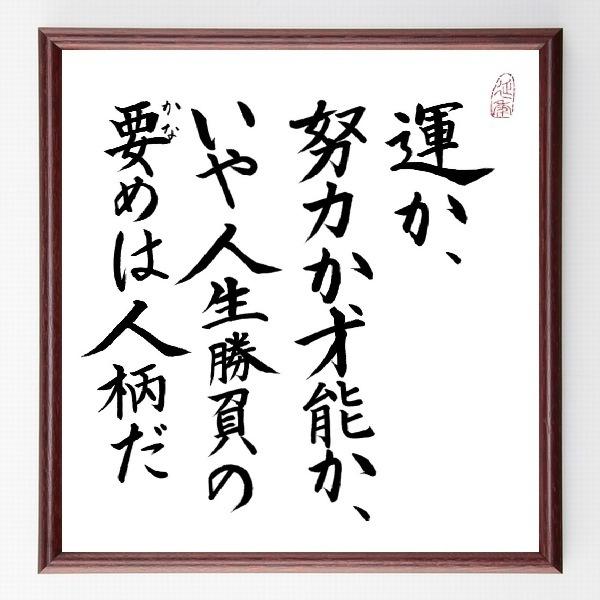 運か、
努力か、才能か、
いや人生勝負の
要めは人柄だ
かな